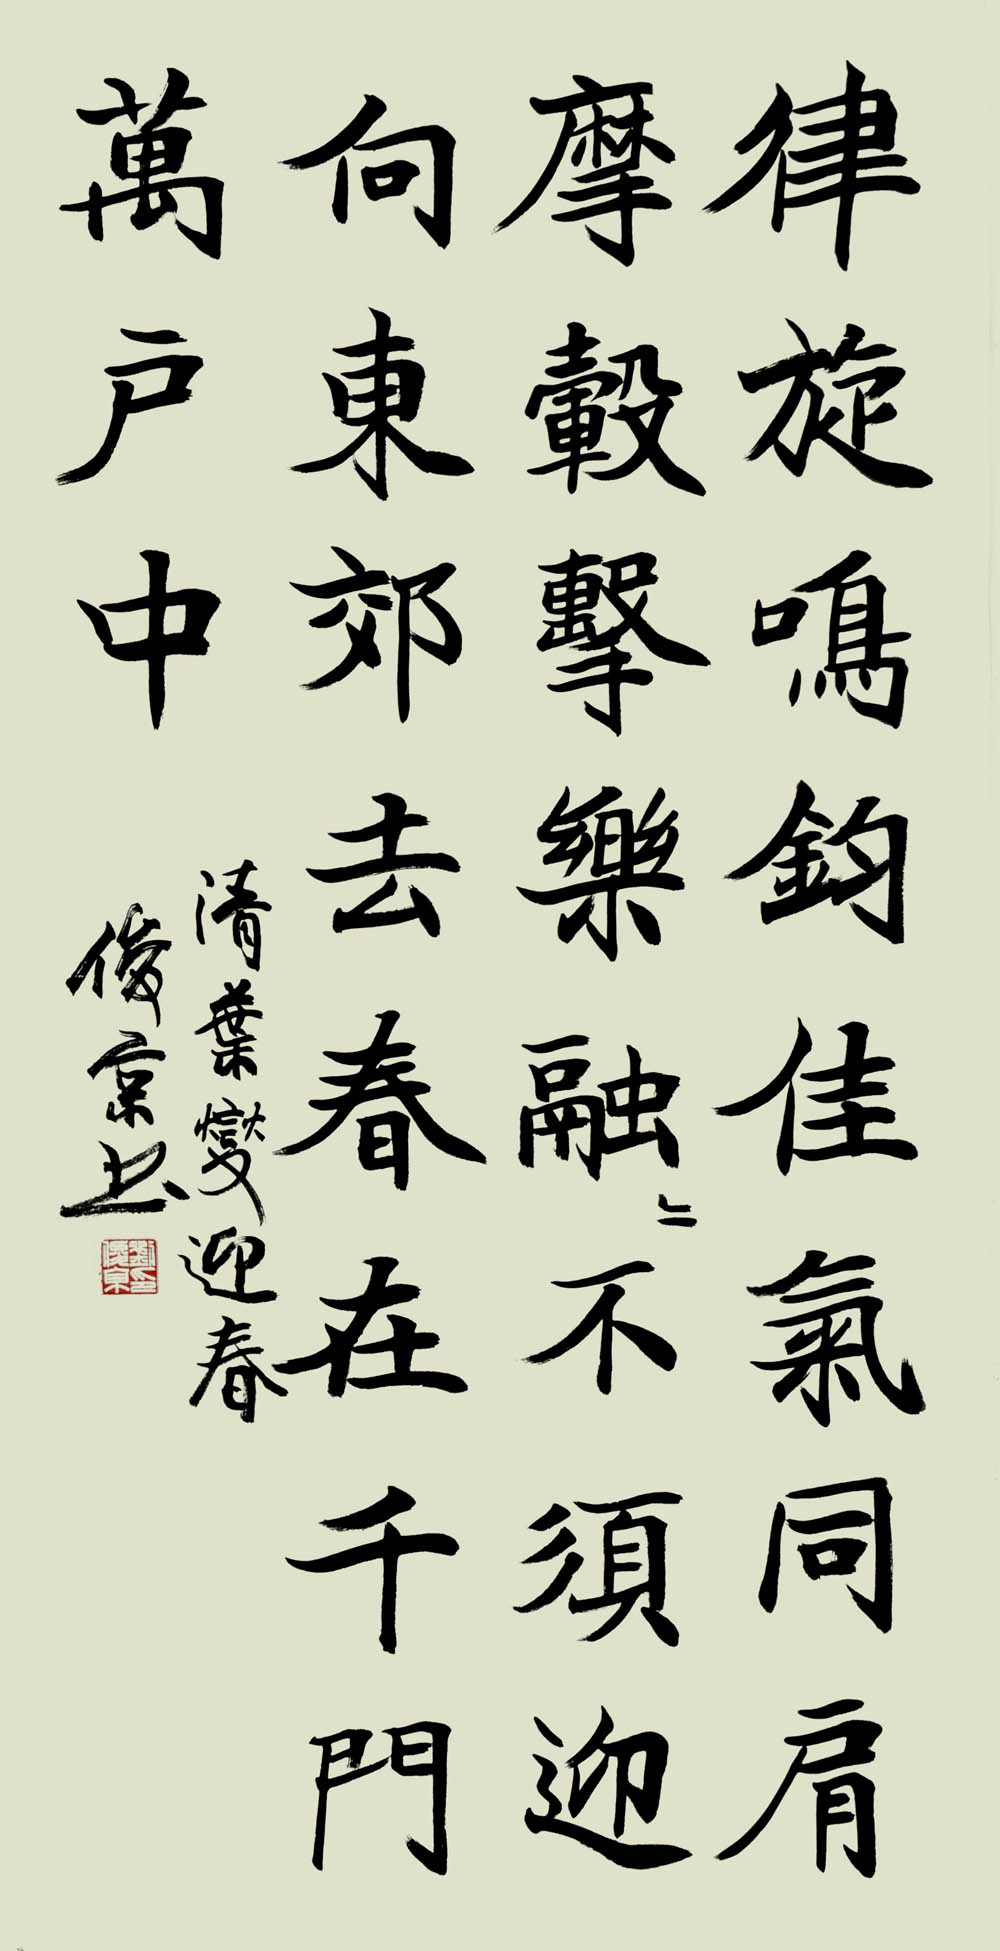 律旋鳴鈞佳氣同肩
摩轂擊樂融〻不須迎
向東郊去春在千門
萬戶中
清葉燮迎春
俊京书
劉俊京印